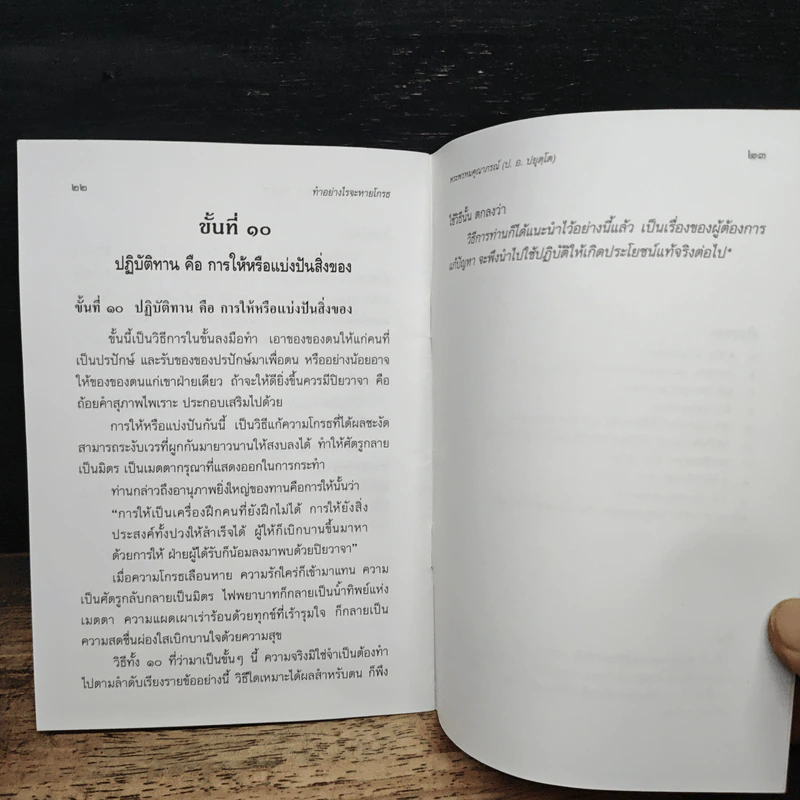 ๒๒
ทำอย่างไรจะหายโกรธ
ขั้นที่ ๑๐
ปฏิบัติทาน คือ การให้หรือแบ่งปันสิ่งของ
ขั้นที่ ๑๐ ปฏิบัติทาน คือ การให้หรือแบ่งปันสิ่งของ
ขั้นนี้เป็นวิธีการในขั้นลงมือทำ เอาของของตนให้แก่คนที่
เป็นปรปักษ์ และรับของของปรปักษ์มาเพื่อตน หรืออย่างน้อยอาจ
ให้ของของตนแก่เขาฝ่ายเดียว ถ้าจะให้ดียิ่งขึ้นควรมีปิยวาจา คือ
ถ้อยคำสุภาพไพเราะ ประกอบเสริมไปด้วย
การให้หรือแบ่งปันกันนี้ เป็นวิธีแก้ความโกรธที่ได้ผลชะงัด
สามารถระงับเวรที่ผูกกันมายาวนานให้สงบลงได้ ทำให้ศัตรูกลาย
เป็นมิตร เป็นเมตตากรุณาที่แสดงออกในการกระทำ
ท่านกล่าวถึงอานุภาพยิ่งใหญ่ของทานคือการให้นั้นว่า
“การให้เป็นเครื่องฝึกคนที่ยังฝึกไม่ได้ การให้ยังสิ่ง
ประสงค์ทั้งปวงให้สำเร็จได้ ผู้ให้ก็เบิกบานขึ้นมาหา
ด้วยการให้ ฝ่ายผู้ได้รับก็น้อมลงมาพบด้วยปิยวาจา”
เมื่อความโกรธเลือนหาย ความรักใคร่ก็เข้ามาแทน ความ
เป็นศัตรูกลับกลายเป็นมิตร ไฟพยาบาทก็กลายเป็นน้ำทิพย์แห่ง
เมตตา ความแผดเผาเร่าร้อนด้วยทุกข์ที่เร้ารุมใจ ก็กลายเป็น
ความสดชื่นผ่องใสเบิกบานใจด้วยความสุข
วิธีทั้ง ๑๐ ที่ว่ามาเป็นขั้นๆ นี้ ความจริงมิใช่จำเป็นต้องทำ
ไปตามลำดับเรียงรายข้ออย่างนี้ วิธีใดเหมาะได้ผลสำหรับตน ก็พึง
พระพรหมคุณาภรณ์ (ป. อ. ปยุตฺโต)
๒๓
ใช้วิธีนั้น ตกลงว่า
วิธีการท่านก็ได้แนะนำไว้อย่างนี้แล้ว เป็นเรื่องของผู้ต้องการ
แก้ปัญหา จะพึงนำไปใช้ปฏิบัติให้เกิดประโยชน์แท้จริงต่อไป*